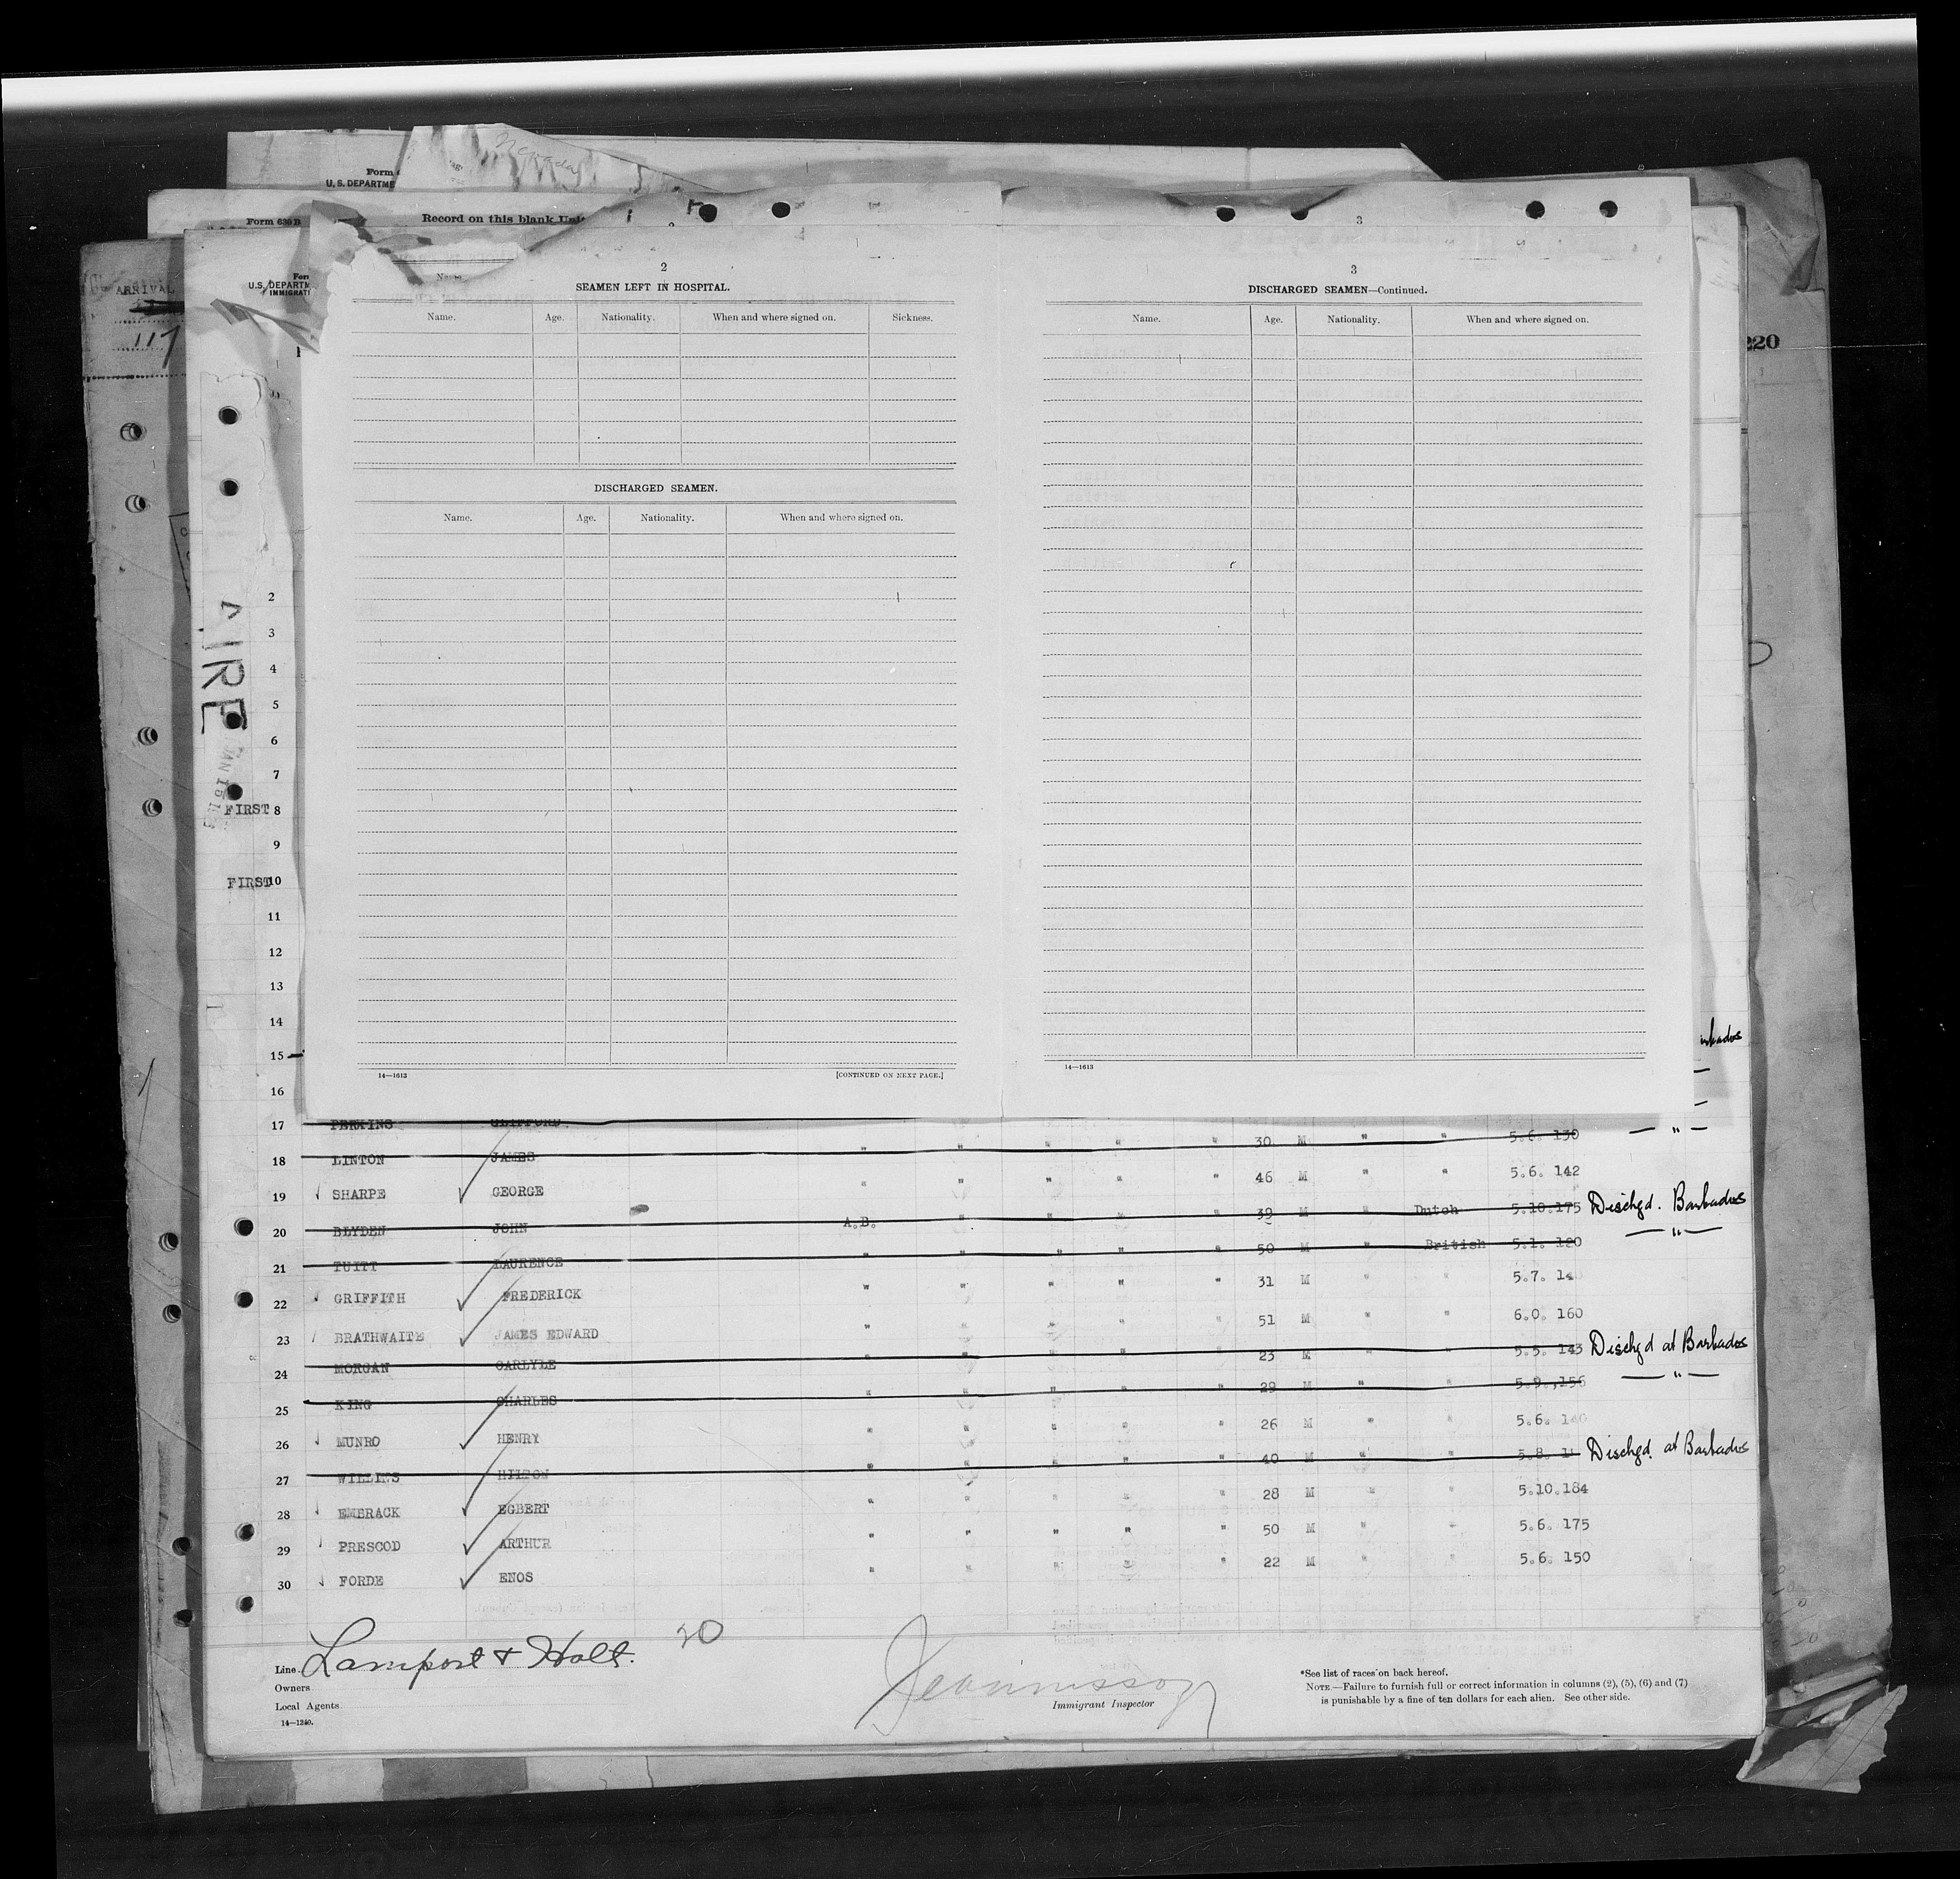 Nevada
Form
U. S. DEPARTME
Form 630 B
Record on this blank
3
ARRIVAL
117
U.S. DEPARTM
IMMIGRATI
220
Name.
2
SEAMEN LEFT IN HOSPITAL.
Name. Age. Nationality. When and where signed on. Sickness.
DISCHARGED SEAMEN.
Name. Age. Nationality. When and where signed on.
14—1612 [CONTINUED ON NEXT PAGE.]
3
DISCHARGED SEAMEN—Continued.
Name. Age. Nationality. When and where signed on.
14—1613
AIRE
2
3
4
5
6
7
FIRST 8
9
FIRST 10
11
12
13
14
15
16
17 PERKINS CLIFFORD
18 LINTON JAMES " " " " " 30 M " " 5.6. 130 — " —
19 SHARPE GEORGE " " " " " 46 M " " 5.6. 142
20 BLYDEN JOHN A.B. " " " " 39 M " Dutch 5.10.175 Dischgd. Barbados
21 TUITT LAURENCE " " " " " 50 M " British 5.1. 120 — " —
22 GRIFFITH FREDERICK " " " " " 31 M " " 5.7.
23 BRATHWAITE JAMES EDWARD " " " " " 51 M " " 6.0. 160
24 MORGAN CARLYLE " " " " " 23 M " " 5.5. 143 Dischgd at Barbados
25 KING CHARLES " " " " " 29 M " " 5.9. 156 — " —
26 MUNRO HENRY " " " " " 26 M " " 5.6. 140
27 HILTON " " " " " 40 M " " 5.8. Dischgd. at Barbados
28 EMBRACK EGBERT " " " " " 28 M " " 5.10.184
29 PRESCOD ARTHUR " " " " " 50 M " " 5.6. 175
30 FORDE ENOS " " " " " 22 M " " 5.6. 150
20
Line Lamport & Holt.
Owners
Local Agents
14—1240.
Immigrant Inspector
*See list of races on back hereof.
NOTE.—Failure to furnish full or correct information in columns (2), (5), (6) and (7)
is punishable by a fine of ten dollars for each alien. See other side.